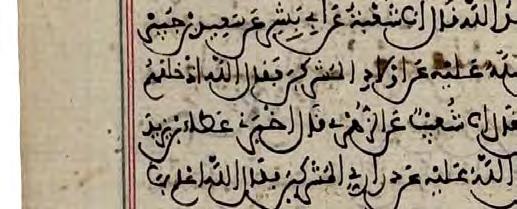 الله قال انا شعبة عن ابي بشر عن سعيد بن جبير
الله عليه عن اولاد المشركين فقال الله اذ خلقهم
قال انا شعيب عن الزهري قال اخبرني عطاء بن يزيد
الله عليه عن ذراري المشركين فقال الله اعلم بما